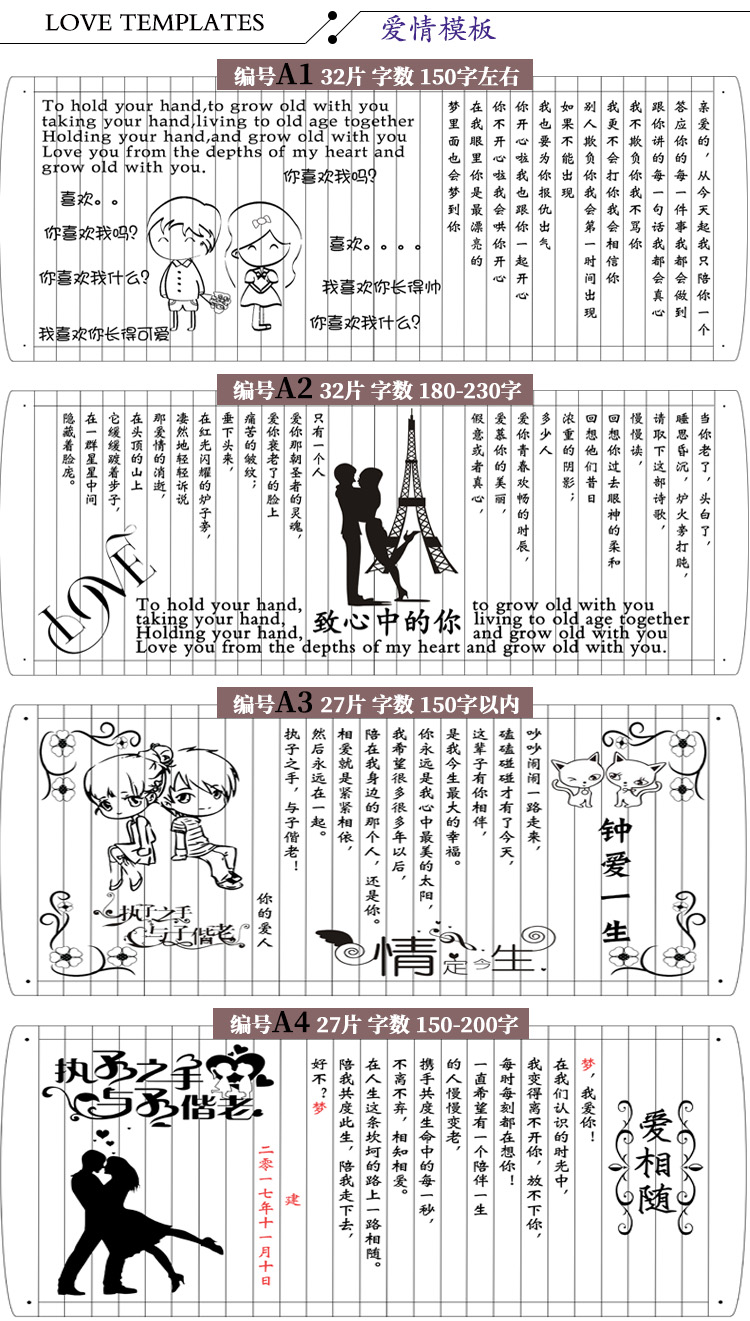 LOVE TEMPLATES
爱情模板
编号A1 32片 字数 150字左右
To hold your hand,to grow old with you
taking your hand,living to old age together
Holding your hand,and grow old with you
Love you from the depths of my heart and
grow old with you.
喜欢。。
你喜欢我吗?
你喜欢我什么?
我喜欢你长得可爱
你喜欢我吗?
喜欢。。。。
我喜欢你长得帅
你喜欢我什么?
亲爱的，从今天起我只陪你一个
答应你的每一件事我都会做到
跟你讲的每一句话我都会真心
我不欺负你我不骂你
我更不会打你我会相信你
别人欺负你我会第一时间出现
如果不能出现
我也要为你报仇出气
你开心啦我也跟你一起开心
你不开心啦我会哄你开心
在我眼里你是最漂亮的
梦里面也会梦到你
编号A2 32片 字数 180-230字
当你老了，头白了，
睡思昏沉，炉火旁打盹，
请取下这部诗歌，
慢慢读，
回想你过去眼神的柔和
回想他们昔日
浓重的阴影；
多少人
爱你青春欢畅的时辰，
爱慕你的美丽，
假意或者真心，
只有一个人
爱你那朝圣者的灵魂，
爱你衰老了的脸上
痛苦的皱纹；
垂下头来，
在红光闪耀的炉子旁，
凄然地轻轻诉说
那爱情的消逝，
在头顶的山上
它缓缓踱着步子，
在一群星星中间
隐藏着脸庞。
LOVE
To hold your hand, to grow old with you
taking your hand, living to old age together
Holding your hand, and grow old with you
Love you from the depths of my heart and grow old with you.
致心中的你
编号A3 27片 字数 150字以内
钟爱一生
吵吵闹闹一路走来，
磕磕碰碰才有了今天，
这辈子有你相伴，
是我今生最大的幸福。
你永远是我心中最美的太阳，
我希望很多很多年以后，
陪在我身边的那个人，还是你。
相爱就是紧紧相依，
然后永远在一起。
执子之手，与子偕老！
你的爱人
执子之手
与子偕老
情定今生
编号A4 27片 字数 150-200字
爱相随
梦，我爱你！
在我们认识的时光中，
我变得离不开你，放不下你，
每时每刻都在想你！
一直希望有一个陪伴一生
的人慢慢变老，
携手共度生命中的每一秒，
不离不弃，相知相爱。
在人生这条坎坷的路上一路相随。
陪我共度此生，陪我走下去，
好不？梦
建
二零一七年十一月十日
执子之手
与子偕老